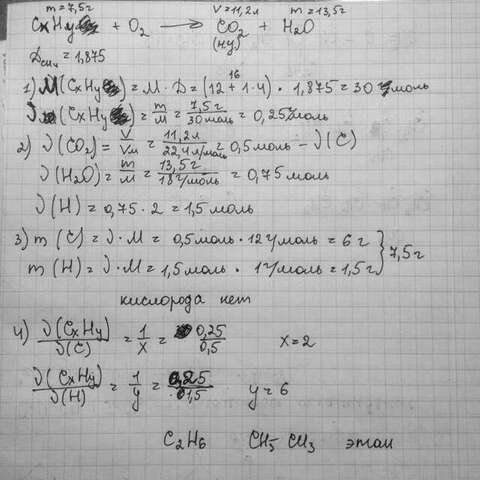 m=7,5г V=11,2л m=13,5г
CxHy + O₂ → CO₂ + H₂O
(ну)
= 1,875
1) M(CxHy) = M · D = (12 + 1·4) · 1,875 = 30 г/моль
16
ν(CxHy) = m/M = 7,5г/30моль = 0,25моль
2) ν(CO₂) = V/Vm = 11,2л/22,4л/моль = 0,5моль – ν(C)
ν(H₂O) = m/M = 13,5г/18г/моль = 0,75моль
ν(H) = 0,75 · 2 = 1,5моль
3) m(C) = ν·M = 0,5моль · 12г/моль = 6г
m(H) = ν·M = 1,5моль · 1г/моль = 1,5г } 7,5г
кислорода нет
4) ν(CxHy)/ν(C) = 1/x = 0,25/0,5 x=2
ν(CxHy)/ν(H) = 1/y = 0,25/1,5 y=6
C₂H₆ CH₃ CH₃ этан